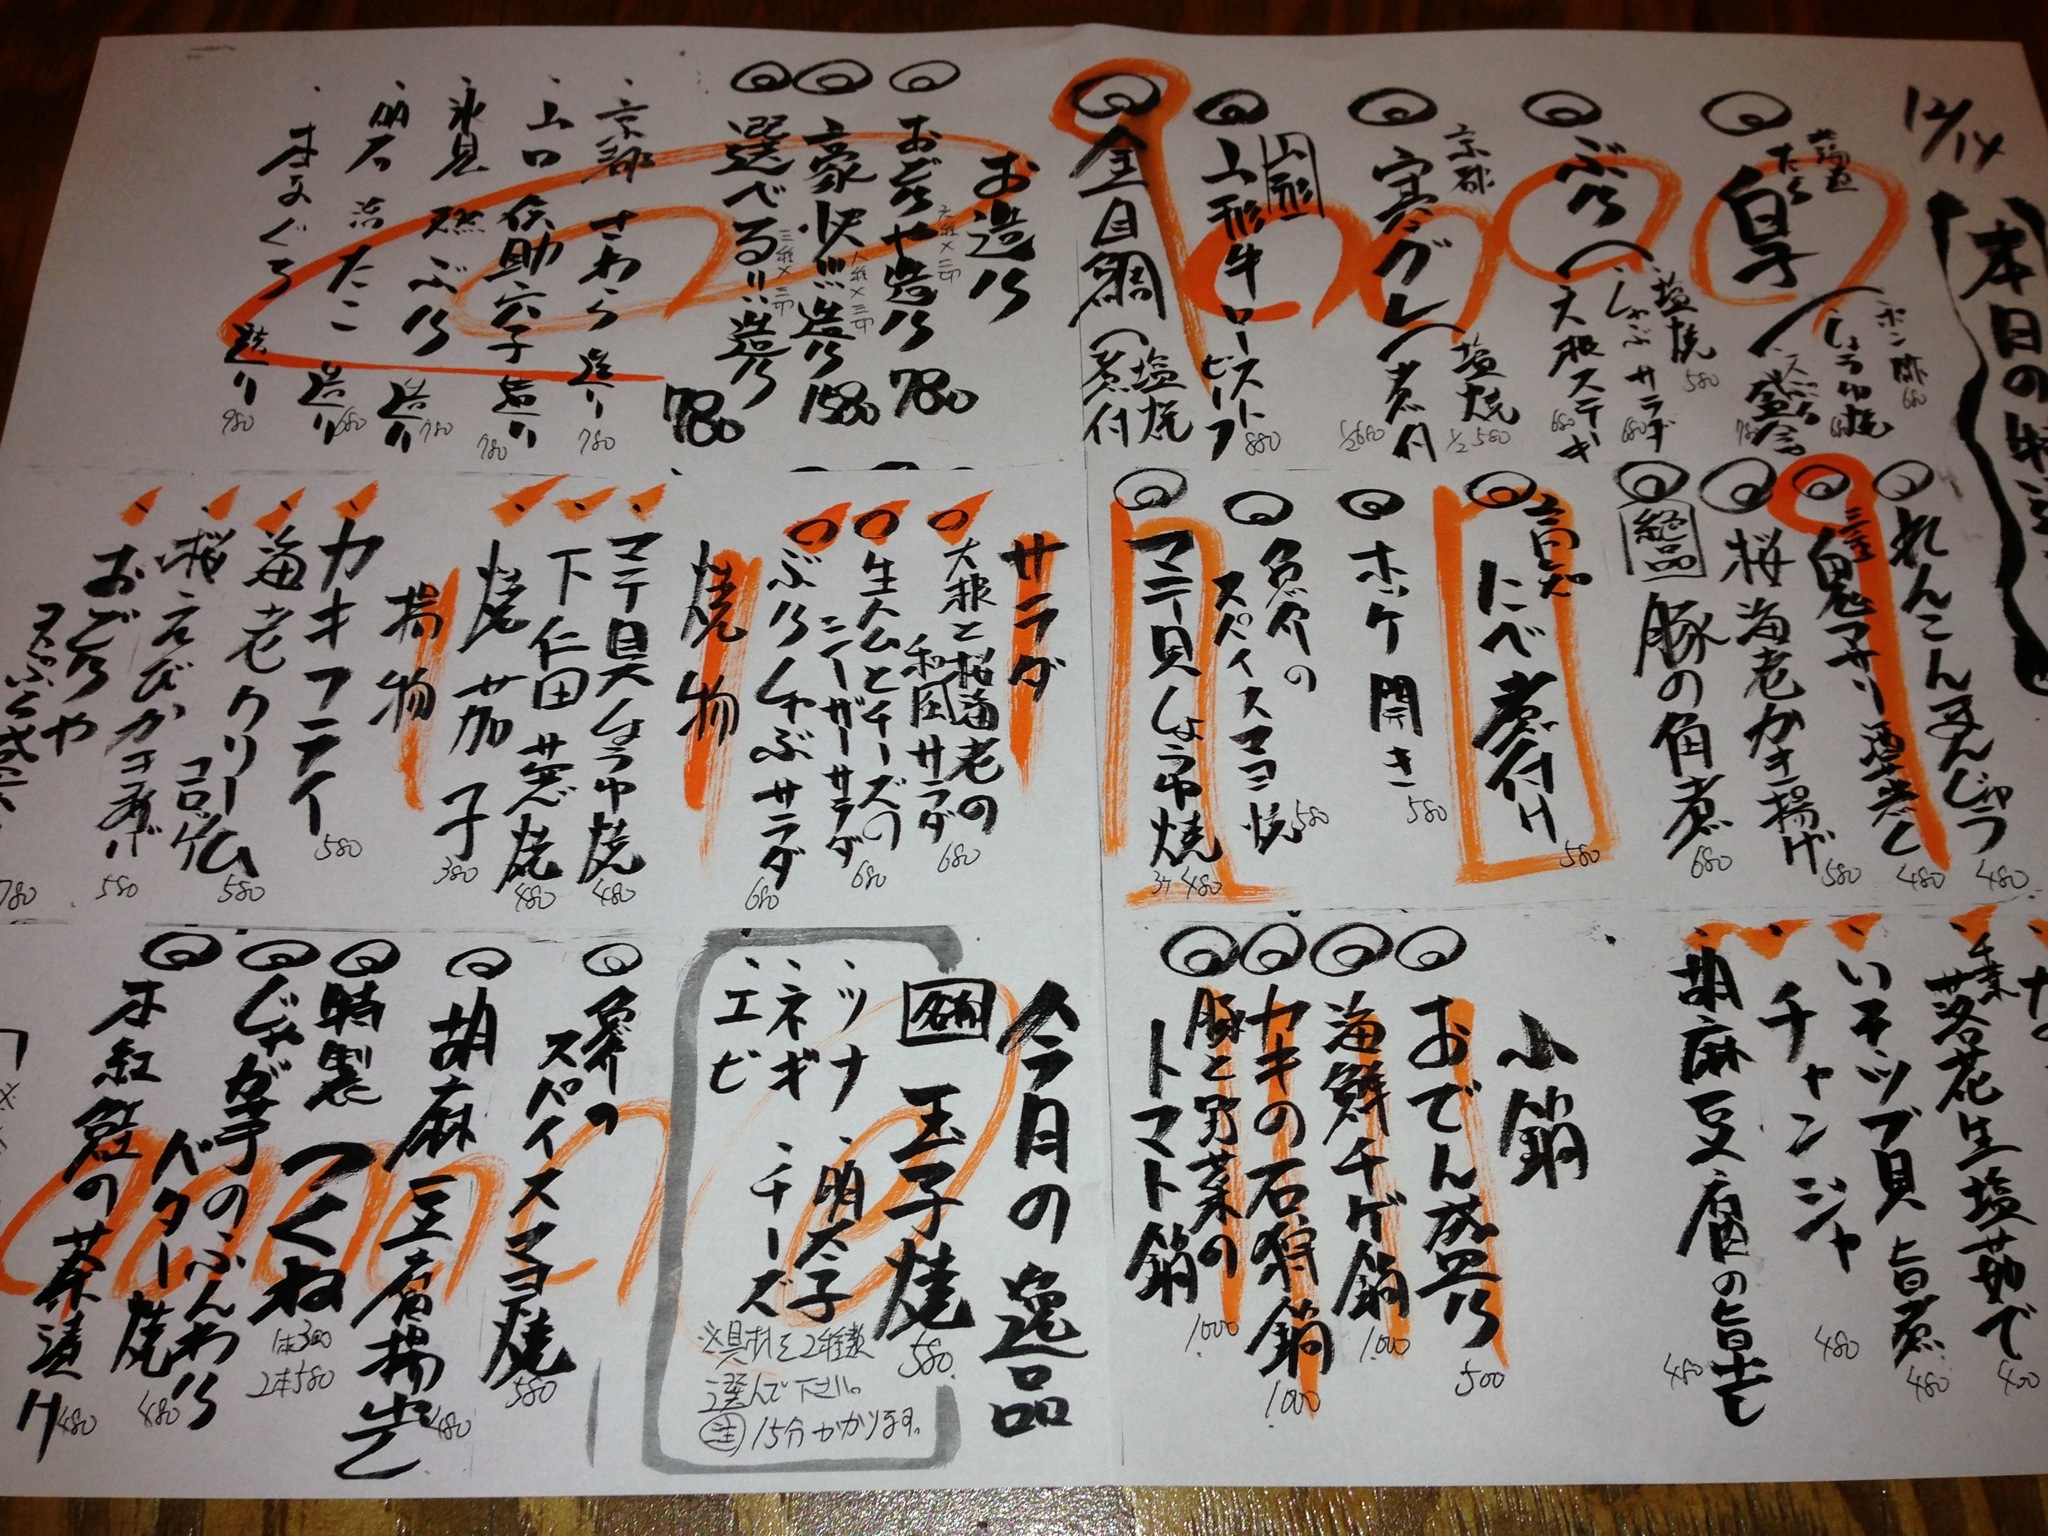 12/14
本日の特
たら
白子
ポン酢
680
しょうゆ焼
ぶり
塩焼
580
しゃぶサラダ
680
大根ステーキ
680
京都
寒グレ
塩焼
1/2 580
煮付
1/2 680
山形
山形牛ローストビーフ
880
金目鯛
塩焼
煮付
お造り
おどりや造り
780
豪快!!!造り
1580
選べる!!造り
三種×三切
780
京都 さわら 造り
780
山口 伝助穴子 造り
780
氷見 ぶり 造り
780
明石 活たこ 造り
680
本まぐろ 造り
980
れんこんまんじゅう
480
480
桜海老かき揚げ
580
絶品
豚の角煮
680
高知
にべ煮付け
580
ホッケ開き
580
魚介の
スパイスマヨ焼
580
マテ貝しょうゆ焼
480
サラダ
大根と桜海老の
和風サラダ
680
生ハムとチーズの
シーザーサラダ
680
ぶりしゃぶサラダ
680
焼物
マテ貝しょうゆ焼
480
下仁田葱焼
480
焼茄子
380
揚物
カキフライ
580
海老クリーム
コロッケ
580
桜えびかき揚げ
580
おどりや
780
千葉
落花生塩茹で
400
いそツブ貝 旨煮
480
チャンジャ
480
胡麻豆腐の旨
480
小鍋
おでん盛り
500
海鮮チゲ鍋
1.000
カキの石狩鍋
1.000
豚と野菜の
トマト鍋
1.000
今月の逸品
名物
玉子焼
580
・ツナ ・明太子
・ネギ ・チーズ
・エビ
※具材を2種類
選んで下さい。
注 15分かかります。
魚介の
スパイスマヨ焼
580
胡麻豆腐揚出し
480
特製 つくね
1本300
2本580
じゃが芋のふんわり
バター焼
480
本紅鮭の茶漬け
480